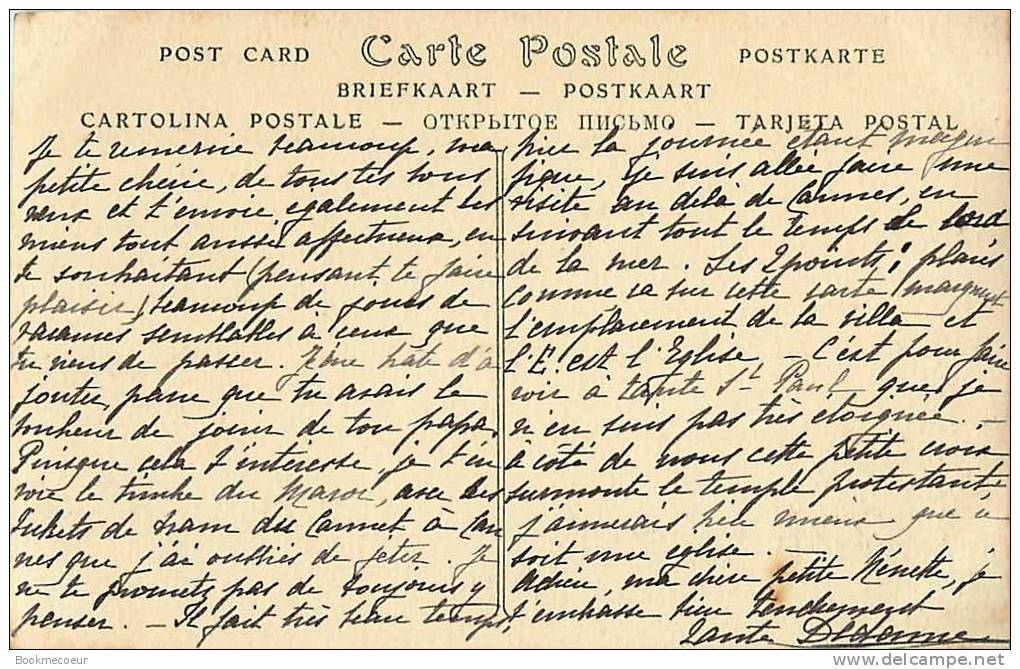 POST CARD Carte Postale POSTKARTE
BRIEFKAART — POSTKAART
CARTOLINA POSTALE — ОТКРЫТОЕ ПИСЬМО — TARJETA POSTAL
Je te remercie beaucoup, ma
petite chérie, de tous tes bons
vœux et t'envoie également les
miens tout aussi affectueux, en
te souhaitant (pensant te faire
plaisir) beaucoup de jours de
vacances semblables à ceux que
tu viens de passer. J'ai hâte d'a
jouter, parce que tu avais le
bonheur de jouir de ton papa.
Puisque cela t'intéresse, je t'en
voie le timbre du Maroc, avec des
tickets de tram du Cannet à Can
nes que j'ai oubliés de jeter. Je
ne te promets pas de toujours y
penser. — Il fait très beau temps,
hier la journée étant magni
fique, je suis allée faire une
visite au delà de Cannes, en
suivant tout le temps le bord
de la mer. Les 2 points : placés
comme ça sur cette carte, marquent
l'emplacement de la villa et
l'E. est l'Eglise. — C'est pour faire
voir à tante St Paul que je
n'en suis pas très éloignée. —
à côté de nous cette petite croix
surmonte le temple protestant,
j'aimerais bien mieux que ce
soit une église. —
Adieu, ma chère petite Nénette, je
t'embrasse bien tendrement
Tante
Bookmecoeur
www.delcampe.net